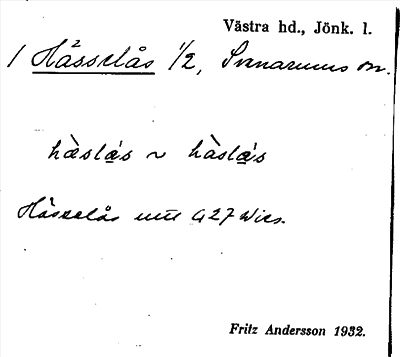 Västra hd., Jönk. l.
1 Håsselås 1/2, Svenarums sn.
hàslá̤s ~ hàslá̤s
Hässelås 427 Wies.
Fritz Andersson 1932.